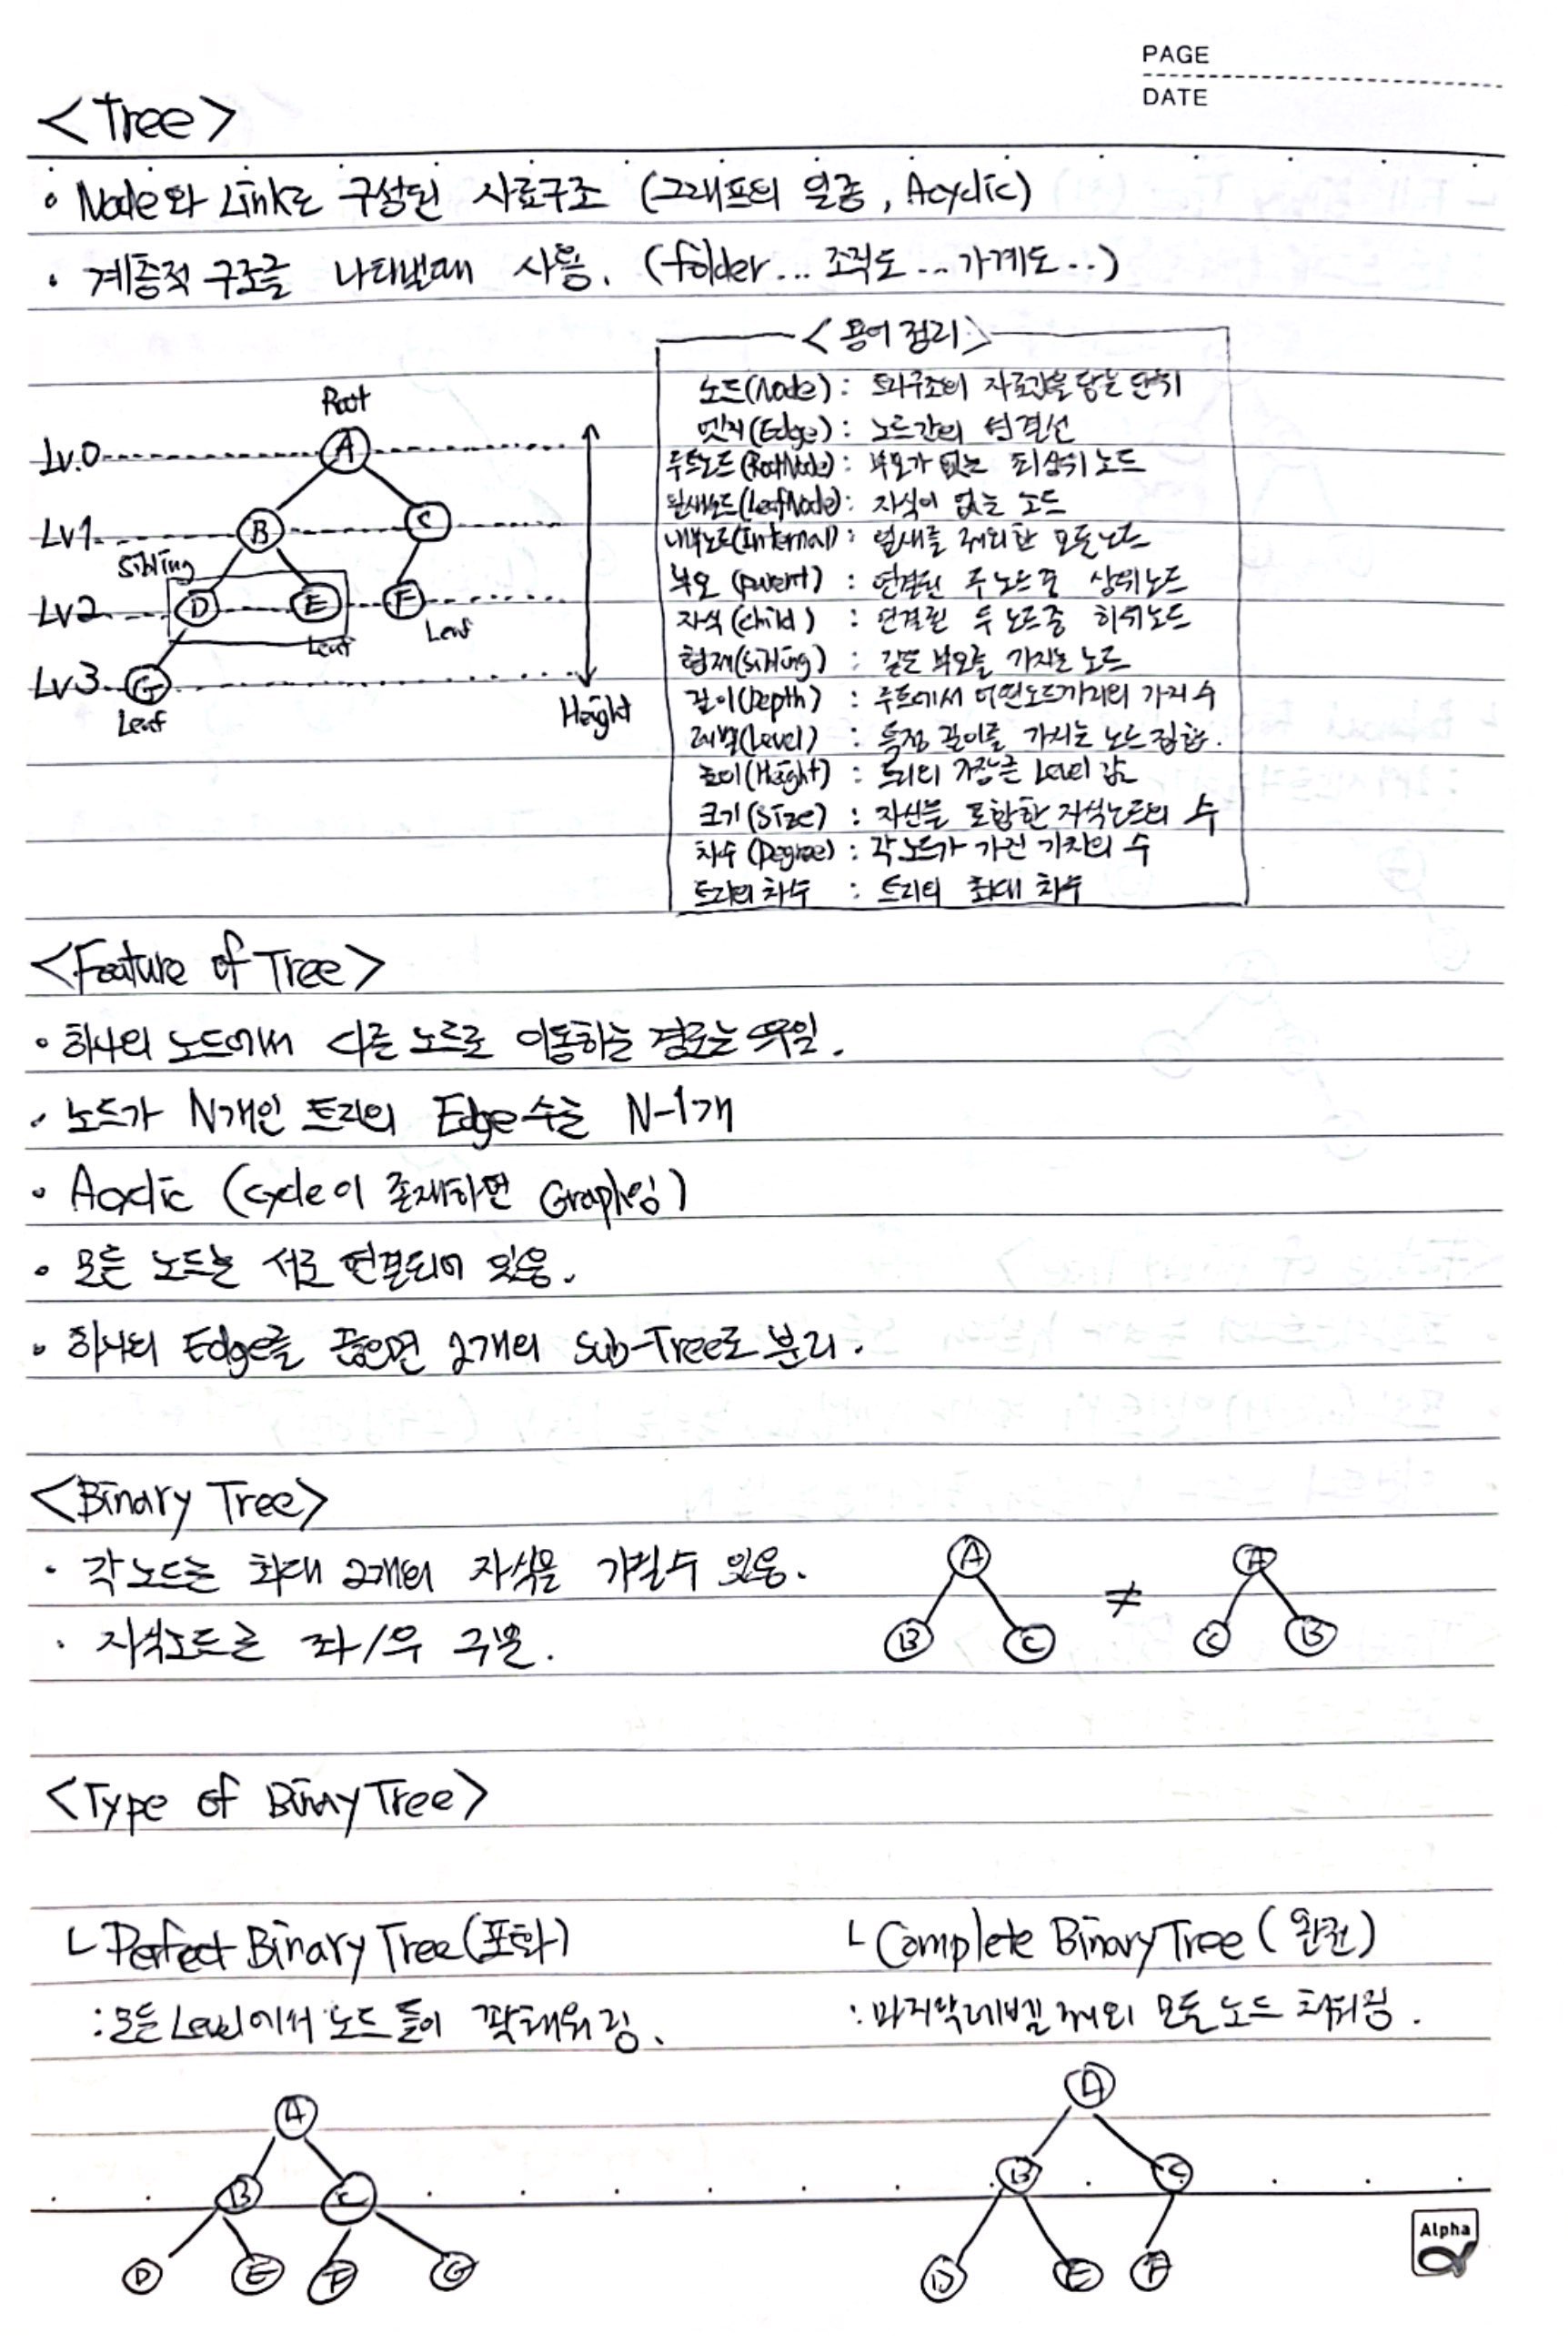 PAGE
DATE
<Tree>
• Node와 Link로 구성된 자료구조 (그래프의 일종, Acyclic)
• 계층적 구조를 나타낼때 사용. (folder... 조직도...가계도..)
<용어 정리>
노드(Node) : 트리구조의 자료값을 담는 단위
엣지(Edge) : 노드간의 연결선
루트노드(RootNode) : 부모가 없는 최상위 노드
잎새노드(LeafNode) : 자식이 없는 노드
내부노드(Internal) : 잎새를 제외한 모든노드
부모 (parent) : 연결된 두 노드 중 상위노드
자식 (child) : 연결된 두 노드중 하위노드
형제(sibling) : 같은 부모를 가지는 노드
깊이(Depth) : 루트에서 어떤노드까지의 가지 수
레벨(Level) : 특정 깊이를 가지는 노드 집합.
높이(Height) : 트리의 가장큰 Level 값
크기(Size) : 자신을 포함한 자식노드의 수
차수(Degree) : 각 노드가 가진 가지의 수
트리의 차수 : 트리의 최대 차수
Root
Lv.0 A
Lv1 B C
Sibling
Lv2 D E F
Leaf Leaf
Lv3 G
Leaf
Height
<Feature of Tree>
• 하나의 노드에서 다른 노드로 이동하는 경로는 유일.
• 노드가 N개인 트리의 Edge수는 N-1개
• Acyclic (cycle이 존재하면 Graph임)
• 모든 노드는 서로 연결되어 있음.
• 하나의 Edge를 끊으면 2개의 Sub-Tree로 분리.
<Binary Tree>
• 각 노드는 최대 2개의 자식을 가질수 있음.
• 자식노드를 좌/우 구분.
A ≠ A
B C C B
<Type of Binary Tree>
ㄴ Perfect Binary Tree(포화)
: 모든 Level에서 노드들이 꽉채워짐.
A
B C
D E F G
ㄴ Complete Binary Tree (완전)
: 마지막레벨 제외 모든 노드 채워짐.
A
B C
D E F
Alpha